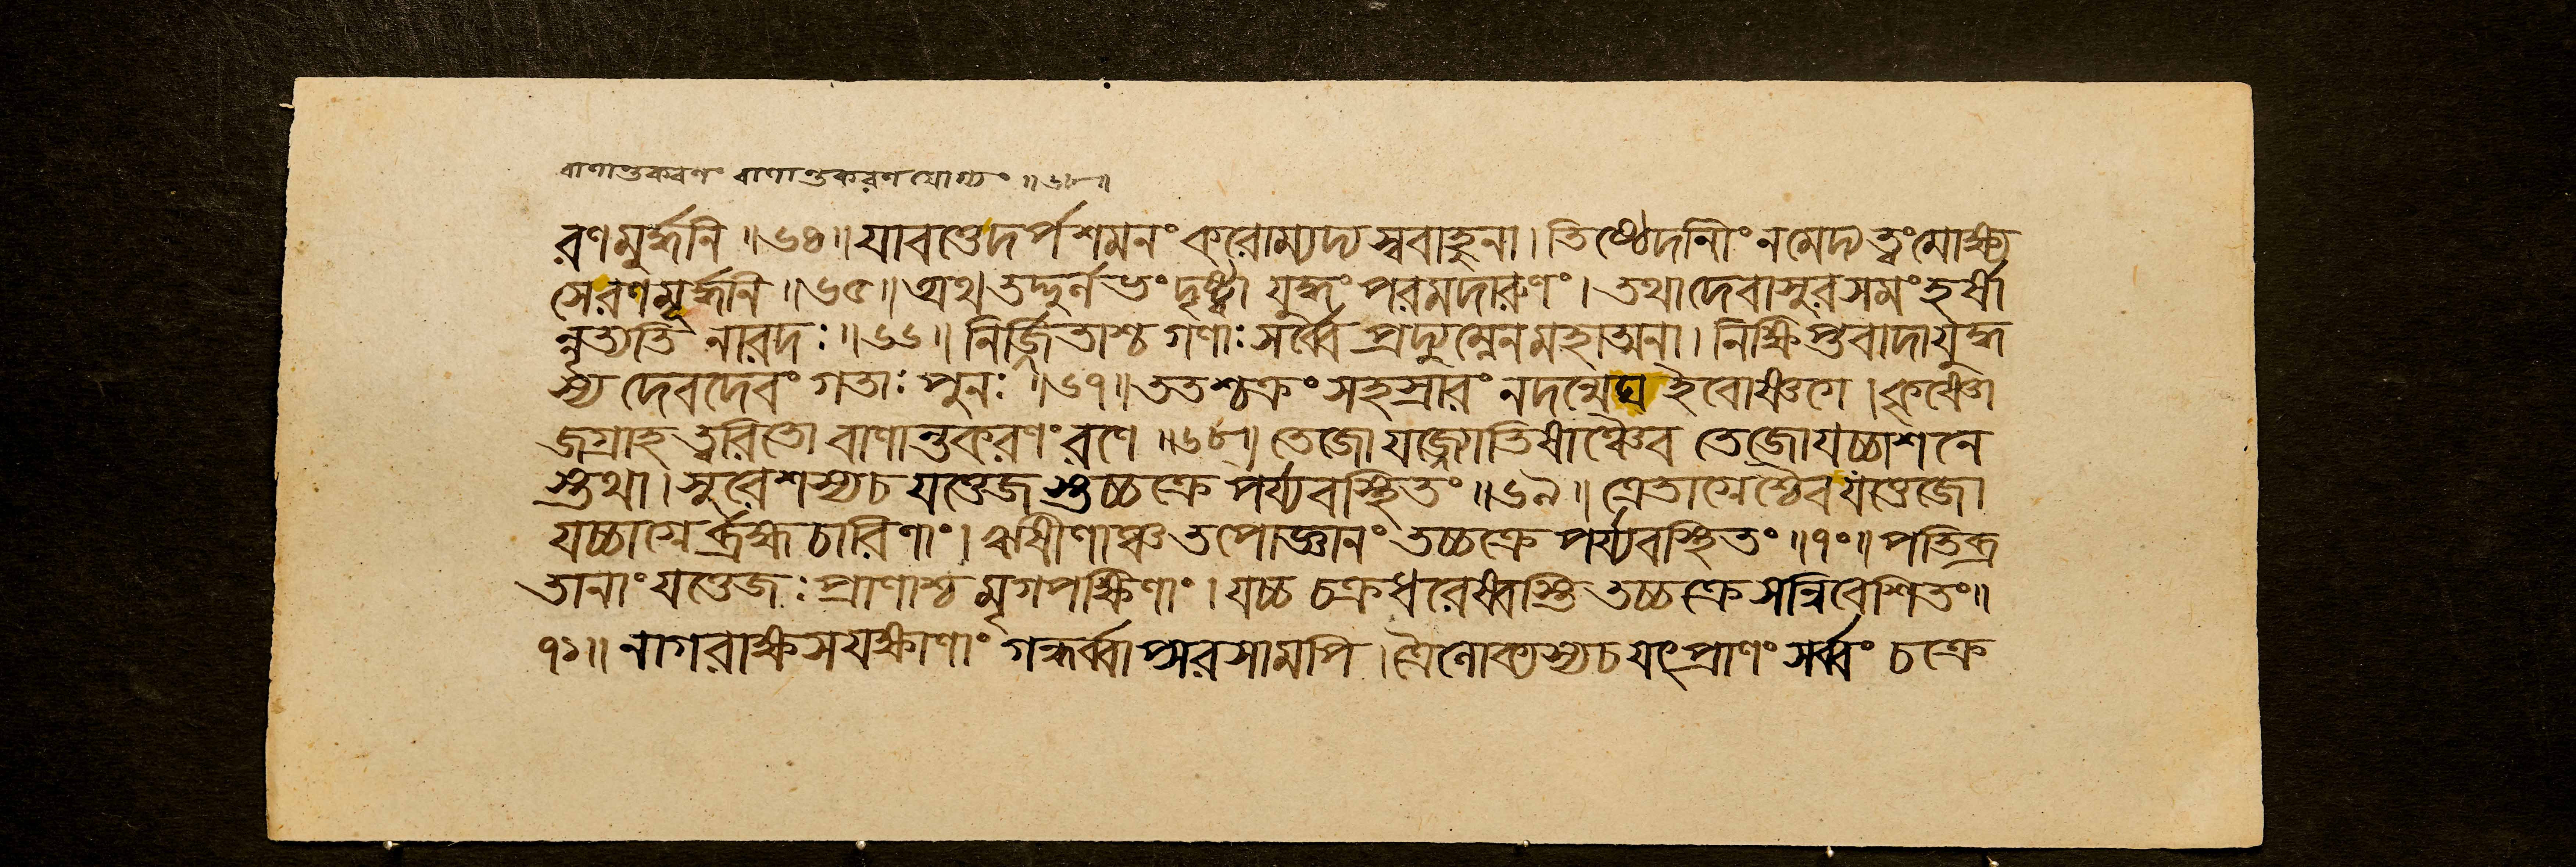 বাণান্তকরণং বাণান্তকরণযোগ্যং ॥৬৮॥
রণমুর্দ্ধনি ॥৬৪॥ যাবত্তেদর্পশমনং করোম্যদ্য স্ববাহুনা। তিষ্ঠেদানীং নমেদ্য ত্বং মোক্ষ্য
সেরণমূর্দ্ধনি ॥৬৫॥ অথ তদ্দুর্লভং দৃষ্ট্বা যুদ্ধং পরমদারুণং। তথা দেবাসুরসমং হর্ষা
ন্নৃত্যতি নারদঃ ॥৬৬॥ নির্জ্জিতাশ্চ গণাঃ সর্ব্বে প্রদ্যুম্নেনমহাত্মনা। নিক্ষিপ্তবাদাযুদ্ধ
স্য দেবদেবং গতাঃ পুনঃ ॥৬৭॥ ততশ্চক্রং সহস্রারং নদন্মেঘ ইবোষ্ণগে। কৃষ্ণো
জগ্রাহ ত্বরিতো বাণান্তকরণং রণে ॥৬৮॥ তেজো যজ্জ্যোতিষাঞ্চৈব তেজোযচ্চাশনে
স্তথা। সুরেশস্যচ যত্তেজ স্তচ্চক্রে পর্য্যবস্থিতং ॥৬৯॥ ত্রেতাগ্নেশ্চৈব যত্তেজো
যচ্চাগ্নের্ব্রহ্মচারিণাং। ঋষীণাঞ্চ তপোজ্ঞানং তচ্চক্রে পর্য্যবস্থিতং ॥৭০॥ পতিব্র
তানাং যত্তেজঃ প্রাণাশ্চ মৃগপক্ষিণাং। যচ্চ চক্রধরেষ্বস্তি তচ্চক্রে সন্নিবেশিতং॥
৭১॥ নাগরাক্ষসযক্ষাণাং গন্ধর্ব্বাপ্সরসামপি। ত্রৈলোক্যস্যচ যৎপ্রাণং সর্ব্বং চক্রে